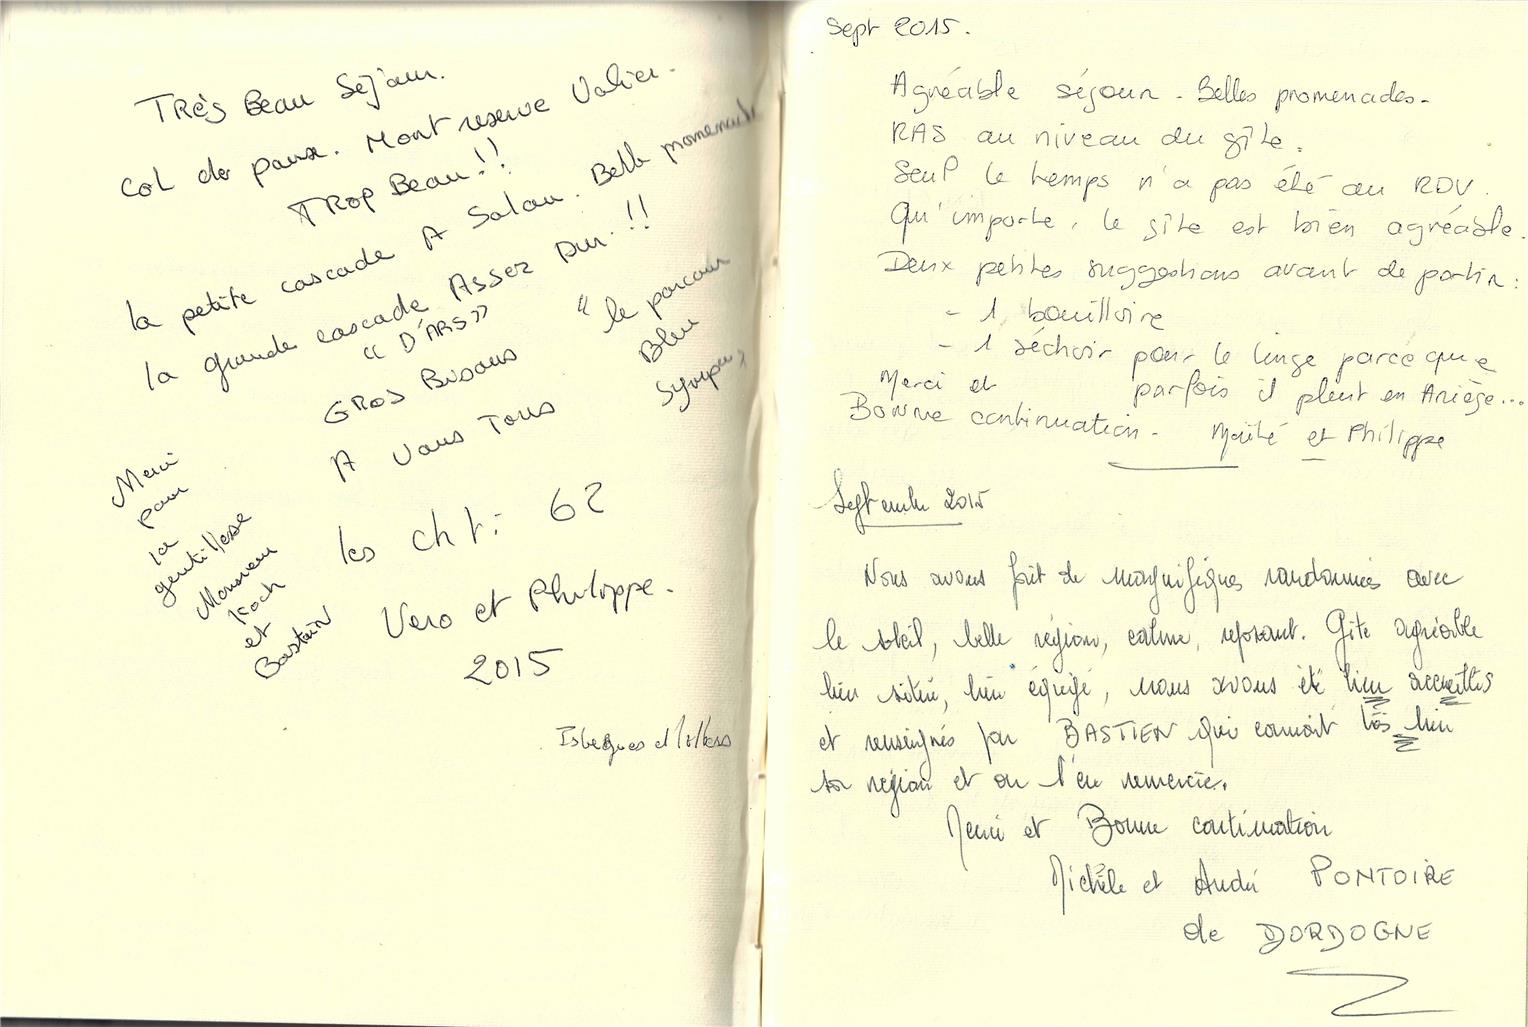 Très Beau Séjour.
Col de paux. Mont reserve Valier.
TROP Beau!!
la petite cascade A Salau. Belle promenade
la grande cascade Assez Dur.!!
"D'ARS"
"le parcour
Bleu
Sympa"
GROS Bisous
A Vous Tous
les chti 62
Vero et Philippe.
2015
Merci
pour
la
gentillesse
Monsieur
Koch
et
Bastien
Isbergues et
Sept 2015.
Agréable séjour - Belles promenades -
RAS au niveau du gîte.
Seul le temps n'a pas été au RDV.
Qu'importe, le gîte est bien agréable.
Deux petites suggestions avant de partir :
- 1 bouilloire
- 1 séchoir pour le linge parce que
parfois il pleut en Ariège...
Merci et
Bonne continuation - Maïté et Philippe
Septembre 2015
Nous avons fait de magnifiques randonnées avec
le soleil, belle région, calme, reposant. Gîte agréable
bien situé, bien équipé, nous avons été bien accueillis
et renseignés par BASTIEN qui connait très bien
sa région et on l'en remercie.
Merci et Bonne continuation
Michèle et André PONTOIRE
de DORDOGNE